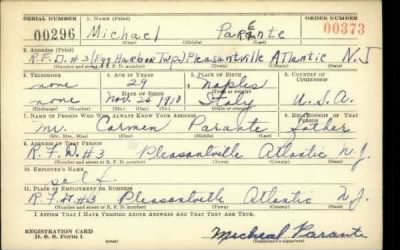 SERIAL NUMBER 1. NAME (Print) ORDER NUMBER
00296 Michael Parente 00373
(First) (Middle) (Last)
2. ADDRESS (Print)
R.F.D.#3 (Egg Harbor Twp.) Pleasantville Atlantic N.J
(Number and street or R. F. D. number) (Town) (County) (State)
3. TELEPHONE 4. AGE IN YEARS 5. PLACE OF BIRTH 6. COUNTRY OF CITIZENSHIP
none 29 Naples
DATE OF BIRTH
none Nov. 25 1910 Italy U.S.A.
(Mo.) (Day) (Yr.) (State or country)
7. NAME OF PERSON WHO WILL ALWAYS KNOW YOUR ADDRESS 8. RELATIONSHIP OF THAT PERSON
Mr. Carmen Parante father
(Mr., Mrs., Miss) (First) (Middle) (Last)
9. ADDRESS OF THAT PERSON
R.F.D.#3 Pleasantville Atlantic N.J.
(Number and street or R. F. D. number) (Town) (County) (State)
10. EMPLOYER'S NAME
self
11. PLACE OF EMPLOYMENT OR BUSINESS
R.F.D.#3 Pleasantville Atlantic N.J.
(Number and street or R. F. D. number) (Town) (County) (State)
I AFFIRM THAT I HAVE VERIFIED ABOVE ANSWERS AND THAT THEY ARE TRUE.
REGISTRATION CARD
D. S. S. Form 1 Micheal Parante